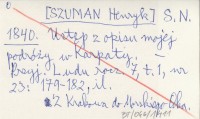 [SZUMAN Henryk] S. N.
1840. Ustęp z opisu mojéj
podróży w Karpaty. –
Przyj. Ludu rocz. 7, t. 1, nr
23: 179-182, il.
Z Krakowa do Morskiego Oka.